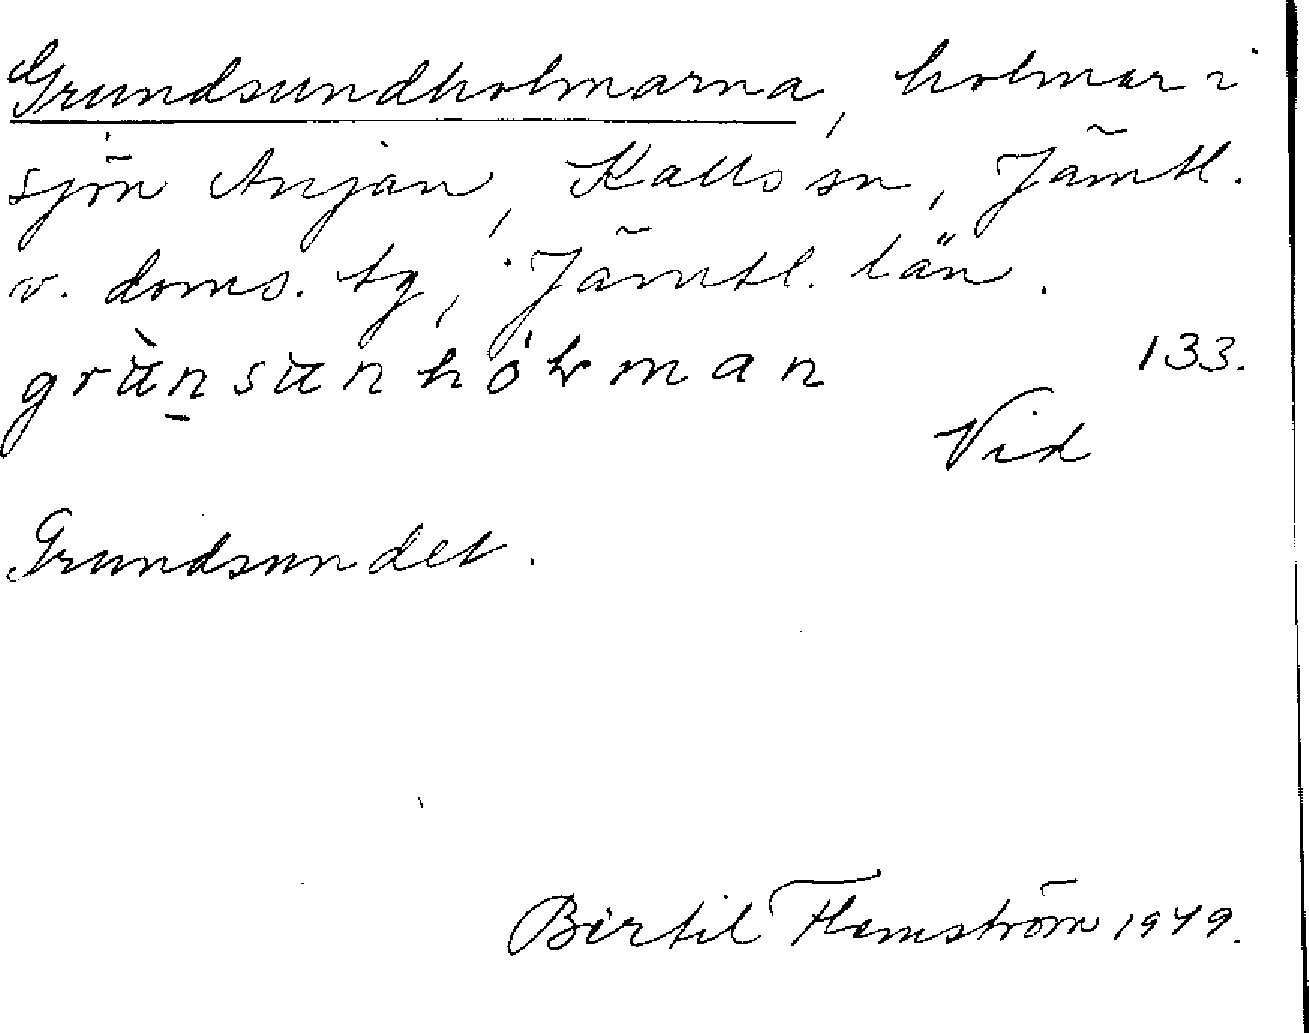 Grundsundholmarna, holmar i
sjön Anjan, Kalls sn, Jämtl.
v. doms. tg, Jämtl. län.
grùnsunhólman 133.
Vid
Grundsundet.
Bertil Flemström 1949.